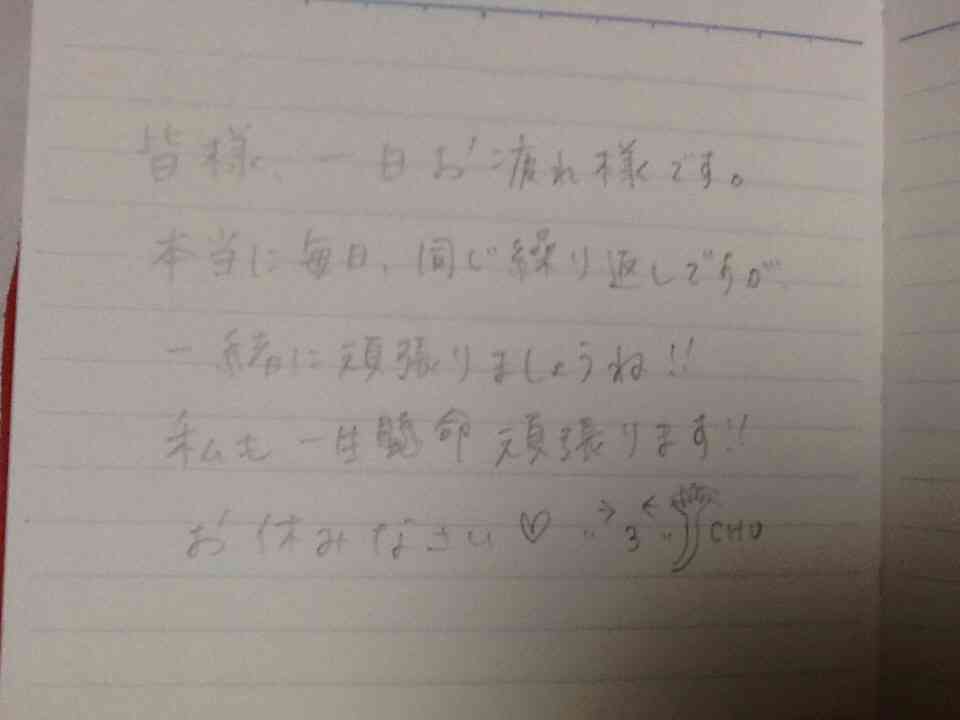 皆様、一日お疲れ様です。
本当に毎日、同じ繰り返しですが
一緒に頑張りましょうね!!
私も一生懸命頑張ります!!
お休みなさい♡ >3< CHU